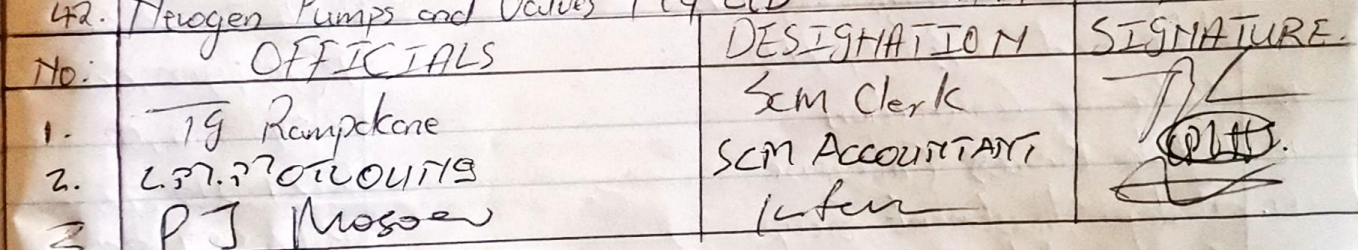 42. Nerogen Pumps and Valves Pty Ltd
No: OFFICIALS DESIGNATION SIGNATURE.
1. TG Rampokane SCM Clerk
2. SCM ACCOUNTANT
3 PJ Intern